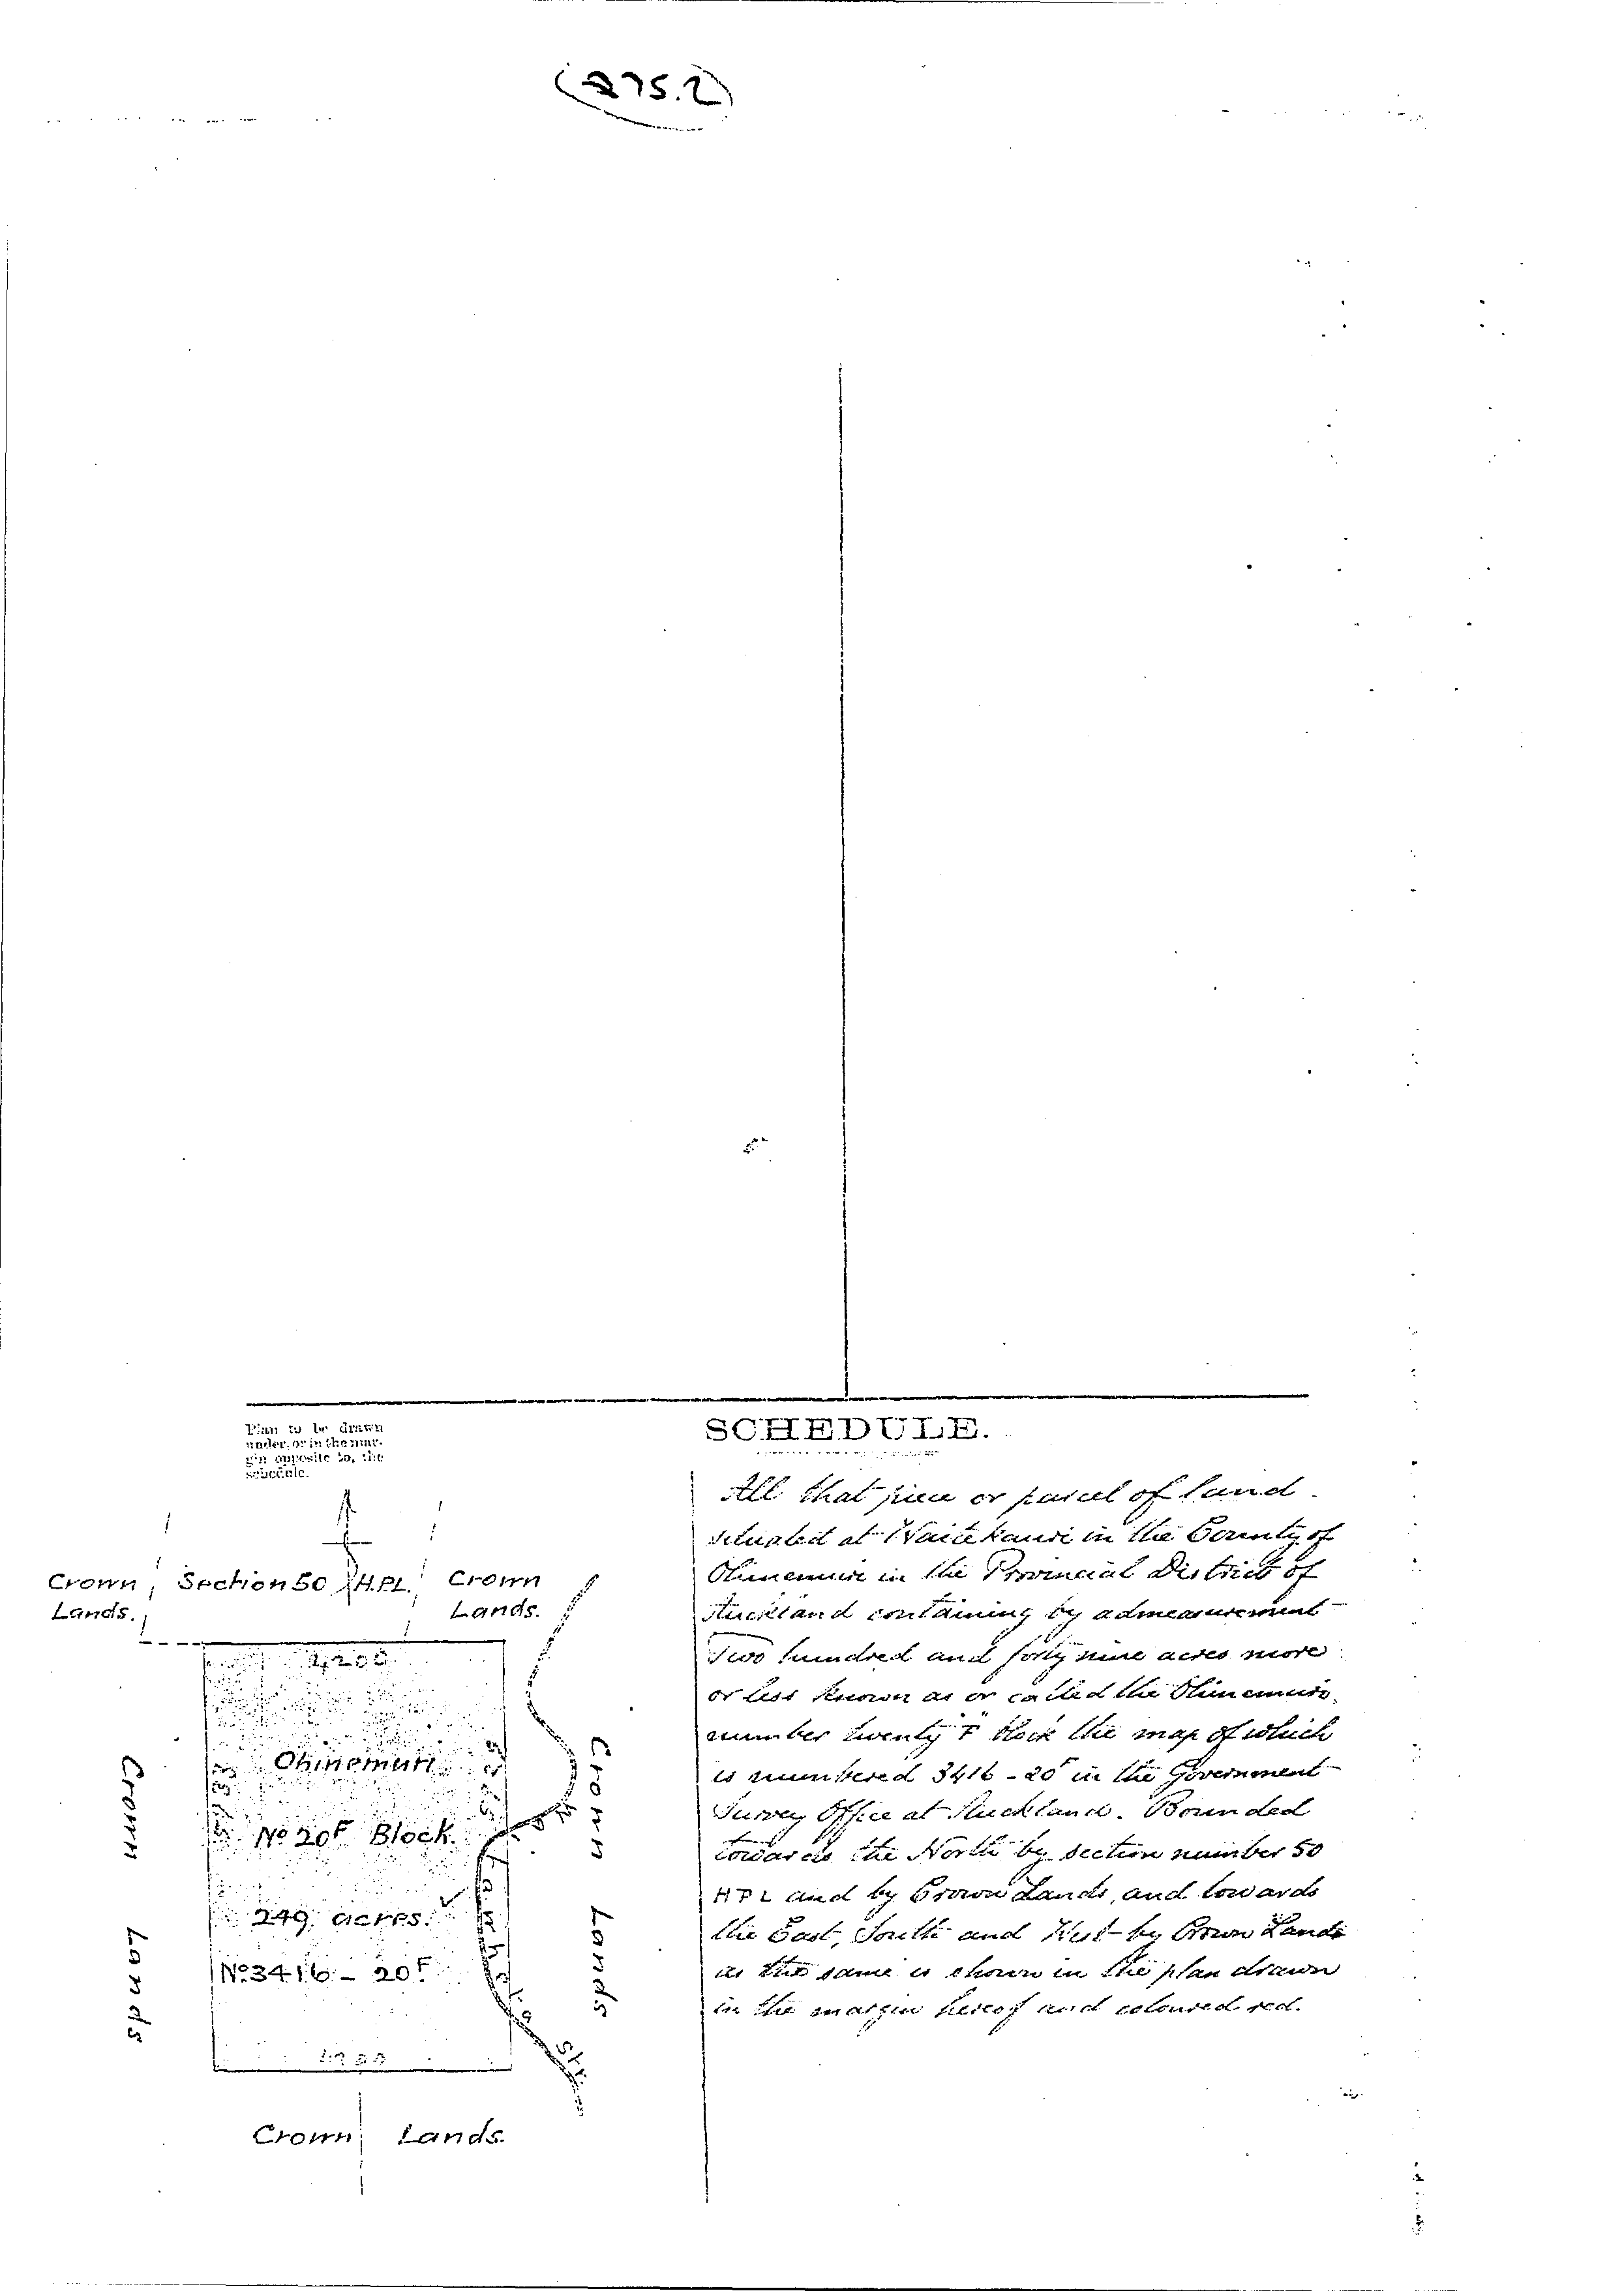 (275.2)
Plan to be drawn
under, or in the mar-
gin opposite to, the
schedule.
Crown
Lands.
Section 50 14.P.L.
Crown
Lands.
Ohinemuri
No 20F Block
249 acres.
No 3416 - 20F
Crown
Lands
Crown
Lands
Crown Lands.
SCHEDULE.
All that piece or parcel of land
situated at Waitekauri in the County of
Ohinemuri in the Provincial District of
Auckland containing by admeasurement
Two hundred and forty nine acres more
or less known as or called the Ohinemuri
number twenty F block the map of which
is numbered 3416 - 20F in the Government
Survey Office at Auckland. Bounded
towards the North by section number 50
and by Crown Lands, and towards
the East, South and West by Crown Lands
as the same is shown in the plan drawn
in the margin hereof and coloured red.